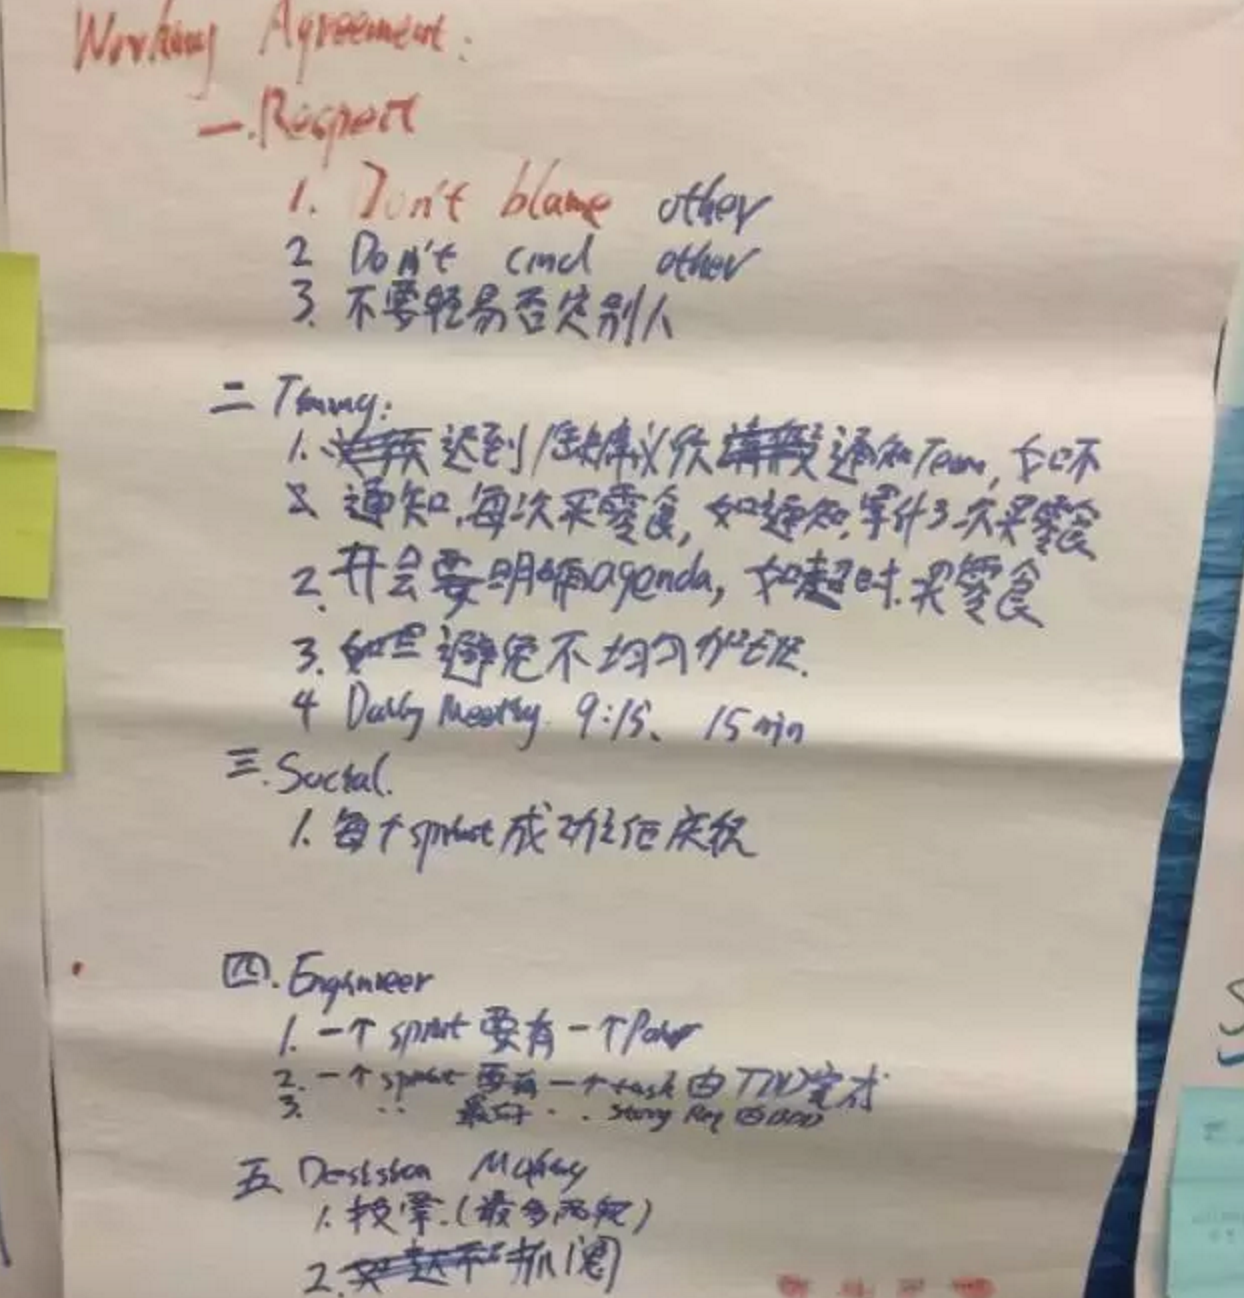 Working Agreement:
一. Respect
1. Don't blame other
2 Don't cmd other
3. 不要轻易否定别人
二 Timing:
1. 迟到/缺席必须通知Team, 如不
通知,每次买零食, 如通知,累计3次买零食
2. 开会要明确agenda, 如超时.买零食
3. 避免不均匀加班.
4 Daily Meeting. 9:15、 15min
三. Social.
1. 每个sprint成功往后庆祝
四. Engineer
1. 一个sprint要有一个Pair
2. 一个sprint要有一个task由TDD完成
3. " 最好 " " Story 由BDD
五 Desision Making
1. 投票.(最多两轮)
2. 抓阄